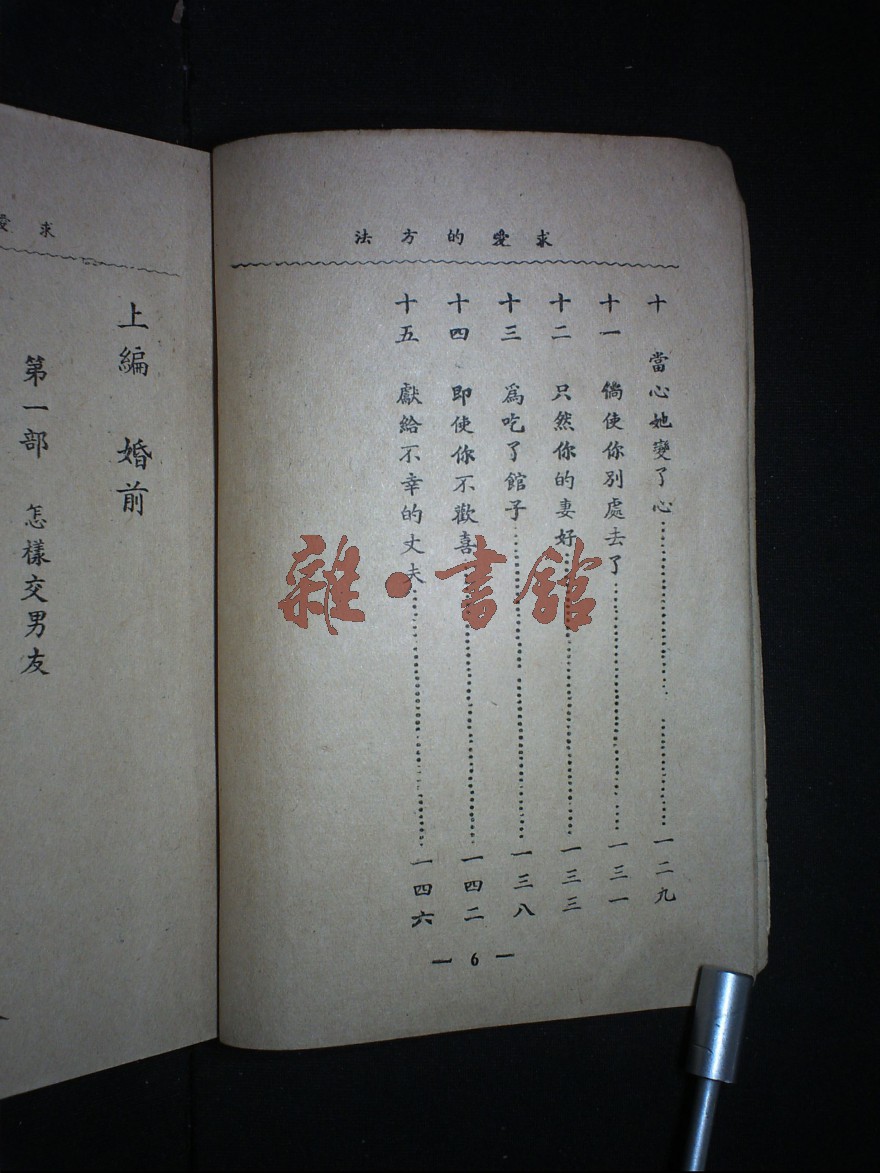 求愛的方法
十 當心她變了心 一二九
十一 倘使你別處去了 一三一
十二 只然你的妻好 一三三
十三 爲吃了館子 一三八
十四 即使你不歡喜 一四二
十五 獻給不幸的丈夫 一四六
— 6 —
求愛
上編 婚前
第一部 怎樣交男友
雜·書館